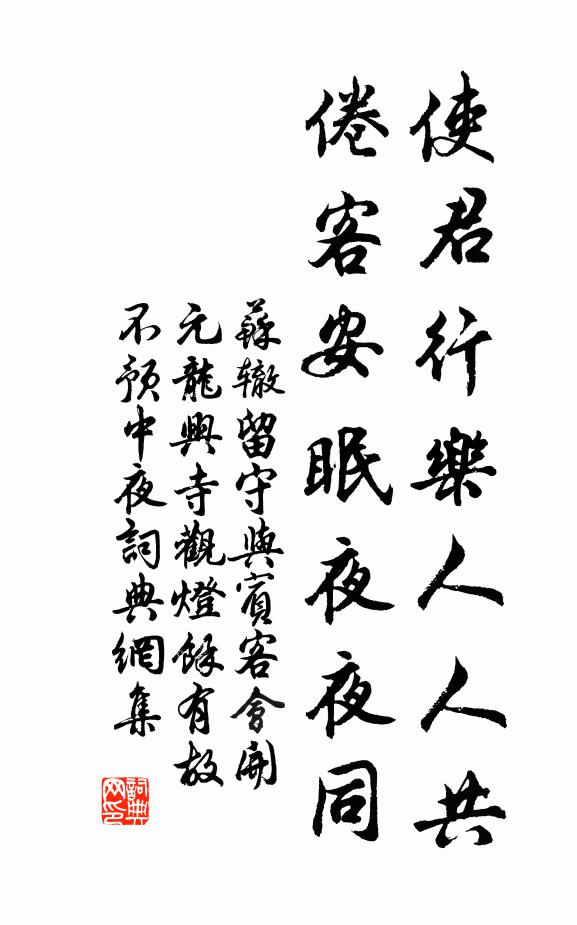 使君行樂人人共
倦客安眠夜夜同
蘇辙留守與賓客會開
元龍興寺觀燈餘有故
不預中夜詞典網集
詞典
网印